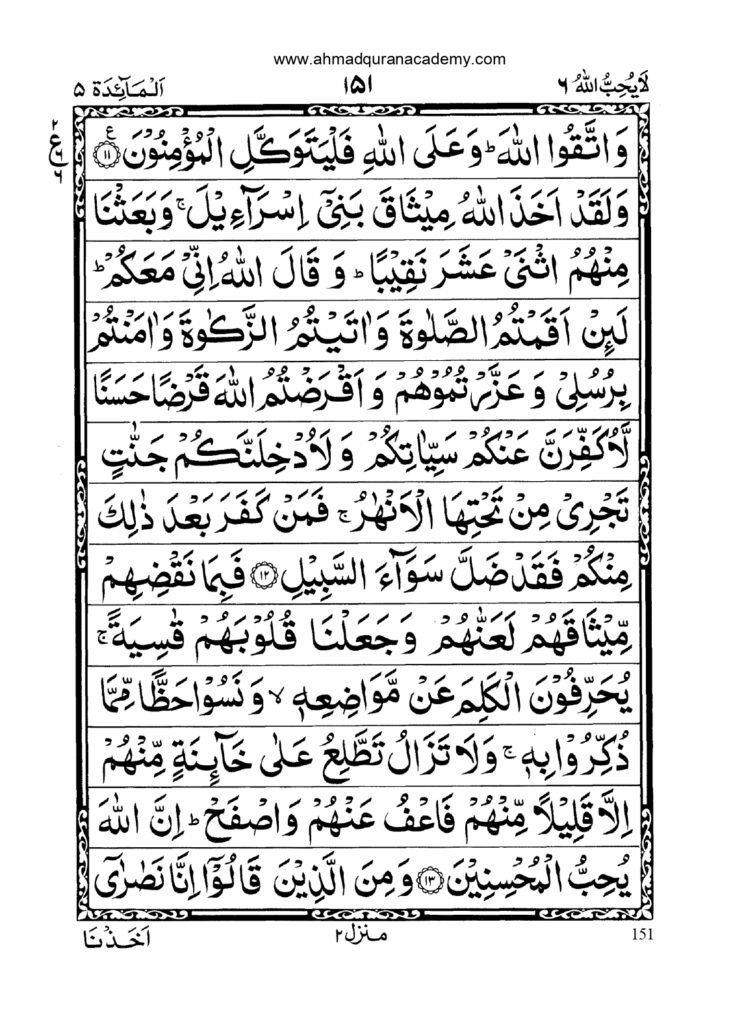 www.ahmadquranacademy.com
لَا يُحِبُّ اللهُ ٦
١٥١
اَلْمَآئِدَة ٥
٢
ع
٦
٦
وَاتَّقُوا اللهَ ؕ وَعَلَى اللهِ فَلْيَتَوَكَّلِ الْمُؤْمِنُوْنَ ﴿١١﴾ ع
وَلَقَدْ اَخَذَ اللهُ مِيْثَاقَ بَنِيْۤ اِسْرَآءِيْلَ ۚ وَبَعَثْنَا
مِنْهُمُ اثْنَيْ عَشَرَ نَقِيْبًا ؕ وَ قَالَ اللهُ اِنِّيْ مَعَكُمْ ؕ
لَئِنْ اَقَمْتُمُ الصَّلٰوةَ وَاٰتَيْتُمُ الزَّكٰوةَ وَاٰمَنْتُمْ
بِرُسُلِيْ وَ عَزَّرْتُمُوْهُمْ وَ اَقْرَضْتُمُ اللهَ قَرْضًا حَسَنًا
لَّاُكَفِّرَنَّ عَنْكُمْ سَيِّاٰتِكُمْ وَ لَاُدْخِلَنَّكُمْ جَنّٰتٍ
تَجْرِيْ مِنْ تَحْتِهَا الْاَنْهٰرُ ۚ فَمَنْ كَفَرَ بَعْدَ ذٰلِكَ
مِنْكُمْ فَقَدْ ضَلَّ سَوَآءَ السَّبِيْلِ ﴿١٢﴾ فَبِمَا نَقْضِهِمْ
مِّيْثَاقَهُمْ لَعَنّٰهُمْ وَجَعَلْنَا قُلُوْبَهُمْ قٰسِيَةً ۚ
يُحَرِّفُوْنَ الْكَلِمَ عَنْ مَّوَاضِعِهٖ ۙ وَ نَسُوْا حَظًّا مِّمَّا
ذُكِّرُوْا بِهٖ ۚ وَلَا تَزَالُ تَطَّلِعُ عَلٰى خَآئِنَةٍ مِّنْهُمْ
اِلَّا قَلِيْلًا مِّنْهُمْ فَاعْفُ عَنْهُمْ وَاصْفَحْ ؕ اِنَّ اللهَ
يُحِبُّ الْمُحْسِنِيْنَ ﴿١٣﴾ وَمِنَ الَّذِيْنَ قَالُوْۤا اِنَّا نَصٰرٰۤى
اَخَذْنَا
منزل ٢
151